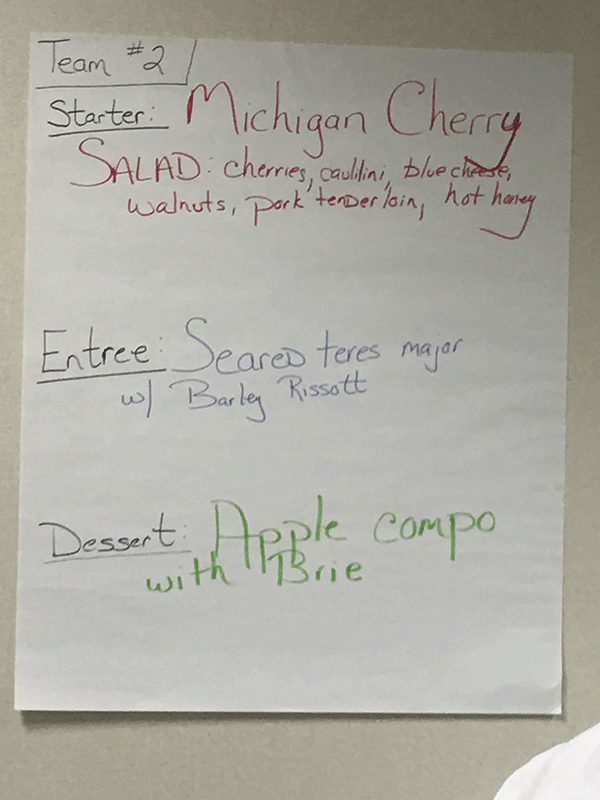 Team #2
Starter: Michigan Cherry
SALAD: cherries, caulilini, blue cheese,
walnuts, pork tenderloin, hot honey
Entree: Seared teres major
w/ Barley Rissott
Dessert: Apple compo
with Brie